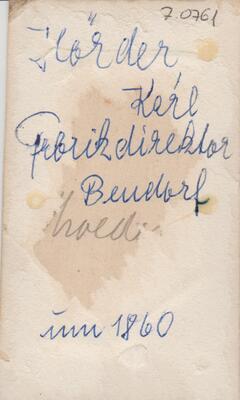 7.0761
Hörder
Karl
Fabrikdirektor
Bendorf
um 1860